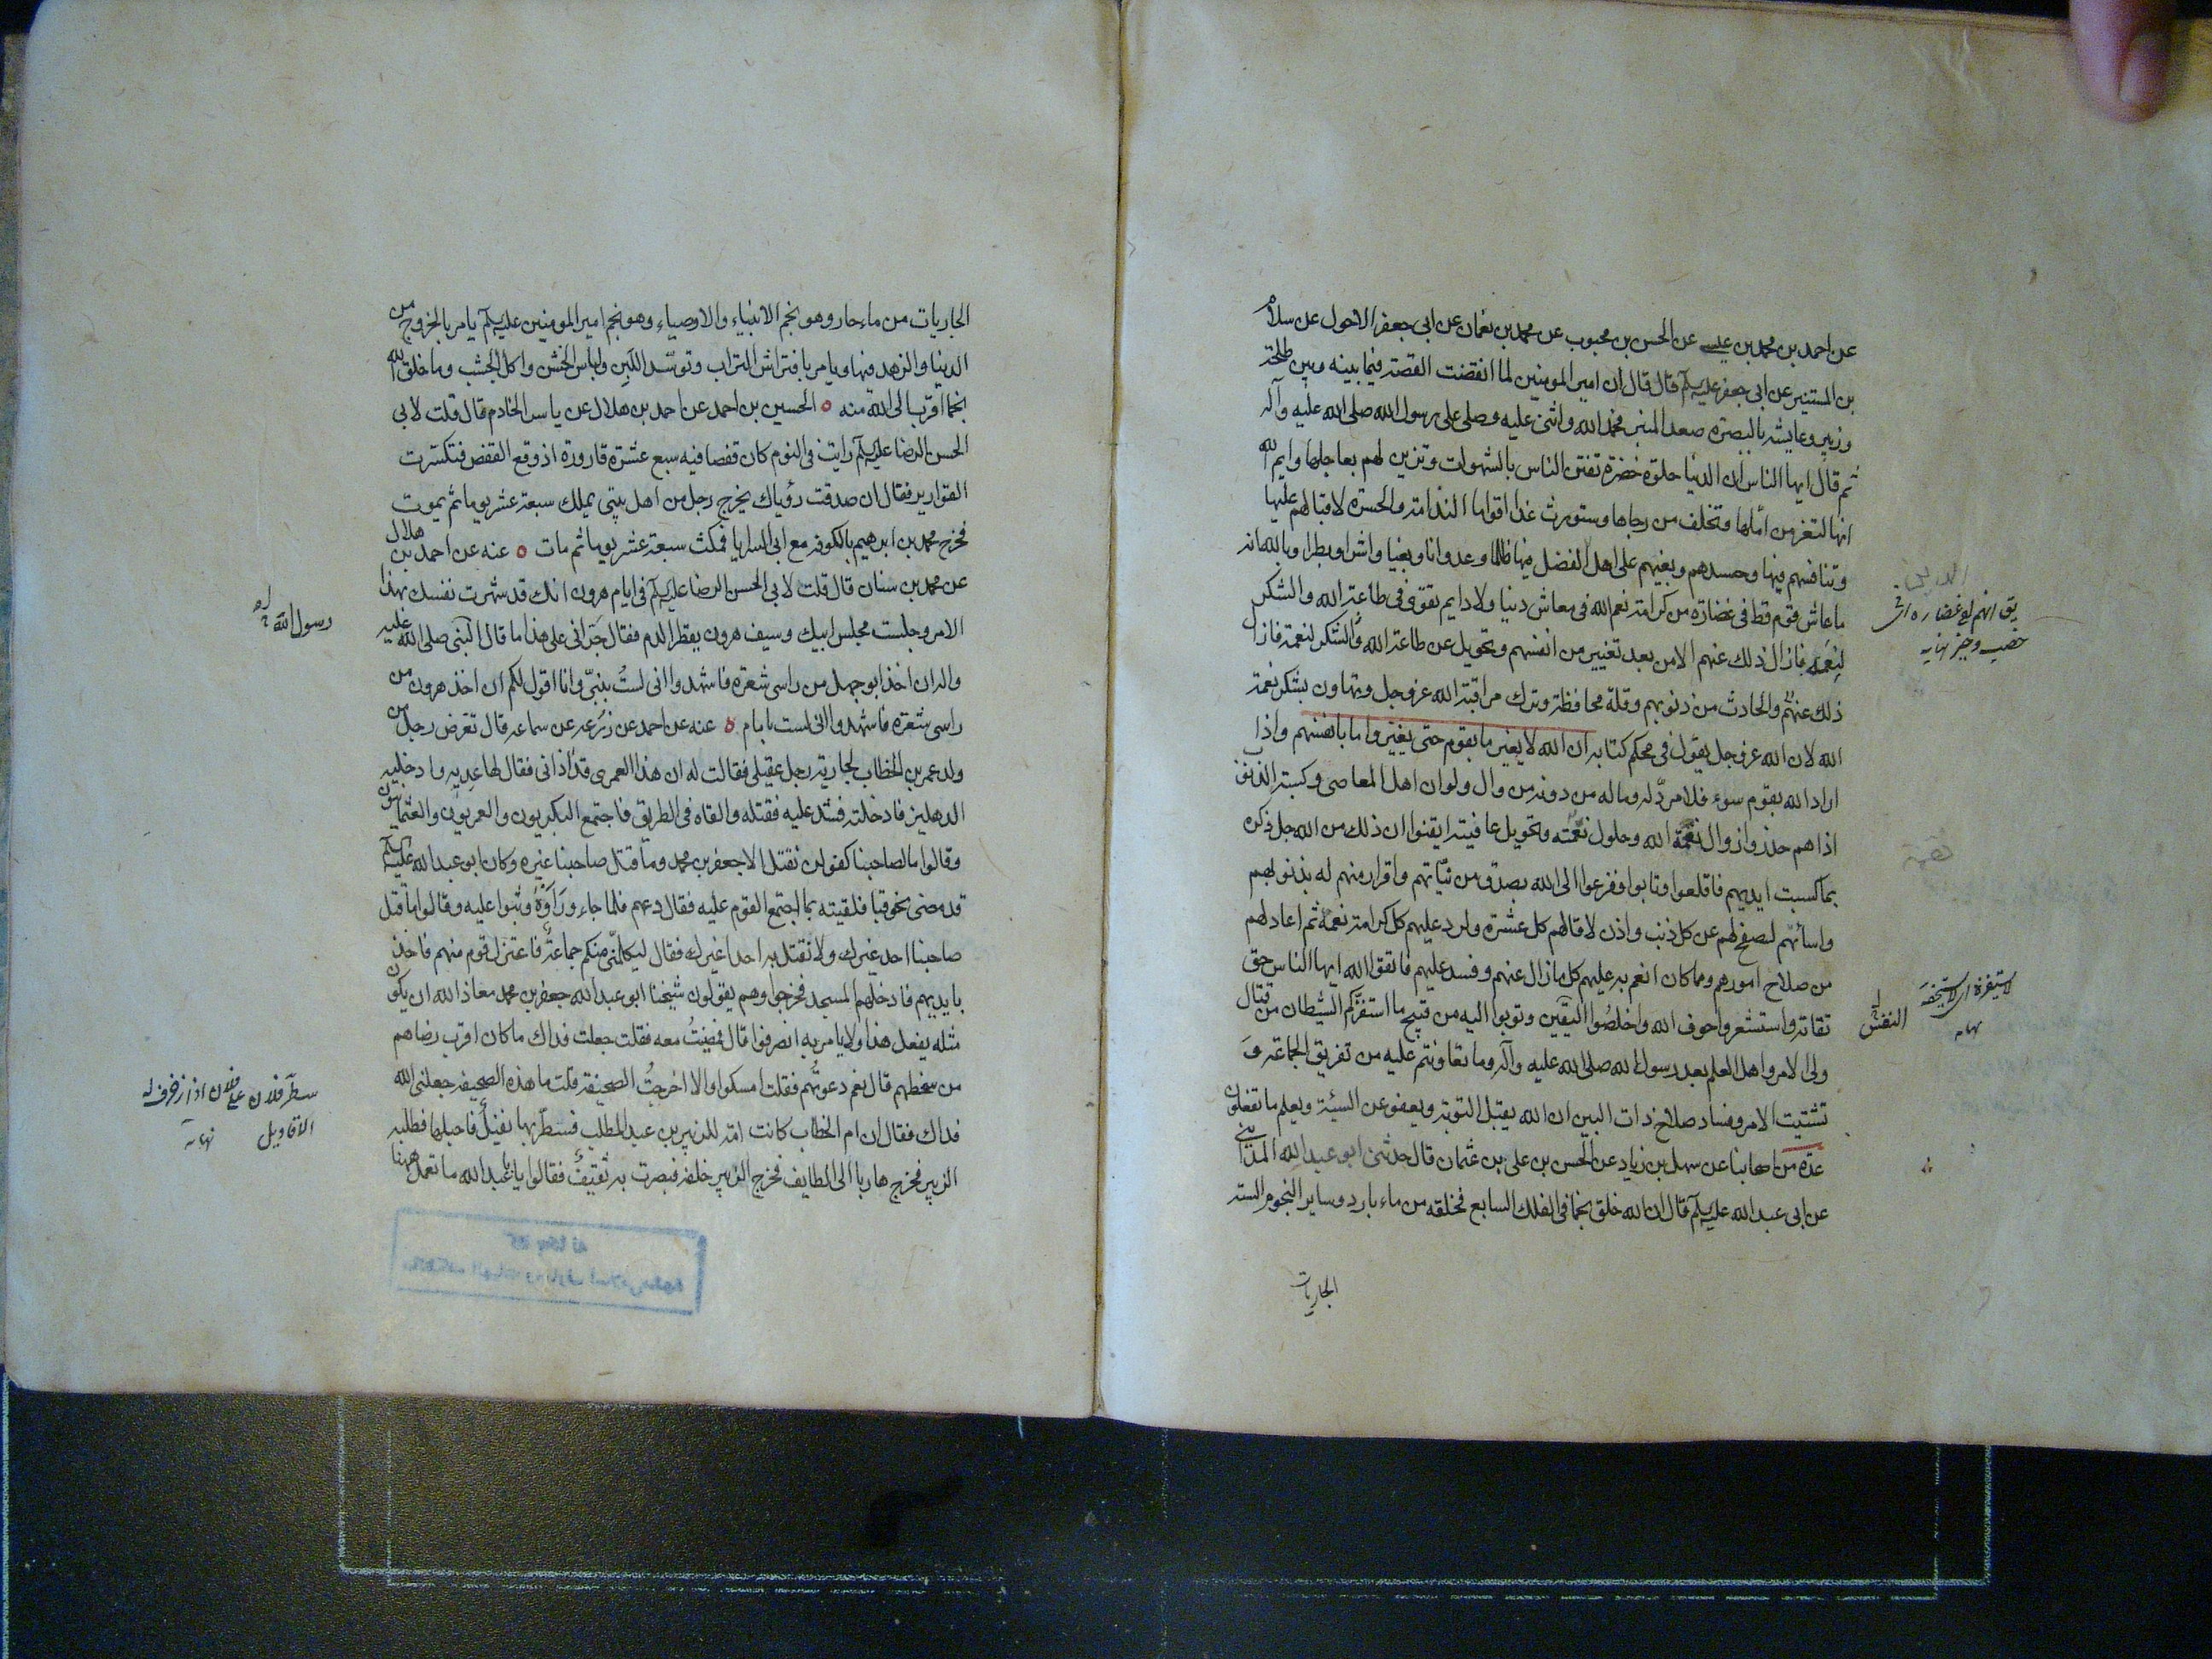 عن احمد بن محمد بن عيسى عن الحسن بن محبوب عن محمد بن نعمان عن ابى جعفر الاحول عن سلام
بن المستنير عن ابى جعفر عليه السلم قال قال ان امير المومنين لما انقضت القصة فيما بينه وبين طلحة
وزبير وعايشه بالبصرة صعد المنبر فحمد الله واثنى عليه وصلى على رسول الله صلى الله عليه وآله
ثم قال ايها الناس ان الدنيا حلوة خضرة تفتن الناس بالشهوات وتزين لهم بعاجلها وايم الله
انها لتغر من املها وتخلف من رجاها وستورث غدا اقواما الندامة والحسرة لاقبالهم عليها
وتنافسهم فيها وحسدهم وبغيهم على اهل الفضل فيها ظلما وعدوانا وبغيا واشرا وبطرا وبالله انه
ما عاش قوم قط فى غضارة من كرامة نعم الله فى معاش دنيا ولا دايم تقوى فى طاعة الله والشكر
لنعمه فازال ذلك عنهم الا من بعد تغيير من انفسهم وتحويل عن طاعة الله والشكر لنعمة فازال
ذلك عنهم والحادث من ذنوبهم وقلة محافظة وترك مراقبة الله عز وجل وتهاون بشكر نعمة
الله لان الله عز وجل يقول فى محكم كتابه ان الله لا يغير ما بقوم حتى يغيروا ما بانفسهم واذا
اراد الله بقوم سوء فلا مردّ له وما له من دونه من وال ولو ان اهل المعاصى وكسبة الذنوب
اذا هم حذروا زوال نعمة الله وحلول نقمته وتحويل عافيته ايقنوا ان ذلك من الله جل ذكره
بما كسبت ايديهم فاقلعوا وتابوا وفزعوا الى الله بصدق من نيّاتهم واقرار منهم له بذنوبهم
واسائتهم لصفح لهم عن كل ذنب واذن لاقالهم كل عشرة ولرد عليهم كل كرامة نعمة ثم اعاد لهم
من صلاح امورهم ومما كان انعم به عليهم كل ما زال عنهم وفسد عليهم فاتقوا الله ايها الناس حق
تقاته واستشعروا خوف الله واخلصوا اليقين وتوبوا اليه من قبيح ما استفزكم الشيطان من قتال
ولى الامر واهل العلم بعد رسول الله صلى الله عليه وآله وما تعاونتم عليه من تفريق الجماعة و
تشتيت الامر وفساد صلاح ذات البين ان الله يقبل التوبة ويعفو عن السيئة ويعلم ما تفعلون
عدة من اصحابنا عن سهل بن زياد عن الحسن بن على بن عثمان قال حدثنى ابو عبد الله المدائنى
عن ابى عبد الله عليه السلم قال ان الله خلق نجما فى الفلك السابع فخلقه من ماء بارد وساير النجوم الستة
الجاريات
يق انهم لفى غضارة اى فى
خصب وخير نهايه
لا يستفزه اى لا يستخفه
نهايه
النفس
الجاريات من ماء حار وهو نجم الانبياء والاوصياء وهو نجم امير المومنين عليه السلم يامر بالخروج من
الدنيا والزهد فيها ويامر بافتراش التراب وتوسّد اللبن ولباس الخشن واكل الجشب وما خلق الله
نجما اقرب الى الله منه ه الحسين بن احمد عن احمد بن هلال عن ياسر الخادم قال قلت لابى
الحسن الرضا عليه السلم رايت فى النوم كان قفصا فيه سبع عشرة قارورة اذ وقع القفص فتكسرت
القوارير فقال ان صدقت رؤياك يخرج رجل من اهل بيتى يملك سبعة عشر يوما ثم يموت
فخرج محمد بن ابرهيم بالكوفة مع ابى السرايا فمكث سبعة عشر يوما ثم مات ه عنه عن احمد بن هلال
عن محمد بن سنان قال قلت لابى الحسن الرضا عليه السلم فى ايام هرون انك قد شهرت نفسك بهذا
الامر وجلست مجلس ابيك وسيف هرون يقطر الدم فقال جرّانى على هذا ما قال النبى صلى الله عليه
واله ان اخذ ابو جهل من راسى شعرة فاشهدوا انى لستُ بنبىّ وانا اقول لكم ان اخذ هرون من
راسى شعرة فاشهدوا انى لست بامام ه عنه عن احمد عن زرعه عن سماعه قال تعرّض رجل من
ولد عمر بن الخطاب لجارية رجل عقيلى فقالت له ان هذا العمرى قد آذانى فقال لها عِديه وادخليه
الدهليز فادخلته فشد عليه فقتله والقاه فى الطريق فاجتمع البكريون والعمريون والعثمانيون
وقالوا ما لصاحبنا كفو لن نقتل الا جعفر بن محمد وما قتل صاحبنا غيره وكان ابو عبد الله عليه السلم
قد مضى نحو قبا فلقيته بما اجتمع القوم عليه فقال دعهم فلما جاء وراَوْهُ وثبوا عليه وقالوا ما قتل
صاحبنا احد غيرك ولا نقتل به احدا غيرك فقال ليكلمنى منكم جماعةٌ فاعتزل قوم منهم فاخذ
بايديهم فادخلهم المسجد فخرجوا وهم يقولون شيخنا ابو عبد الله جعفر بن محمد معاذ الله ان يكون
مثله يفعل هذا ولا يامر به انصرفوا قال فمضيتُ معه فقلت جعلت فداك ما كان اقرب رضاهم
من سخطهم قال نعم دعوتهم فقلت امسكوا والا اخرجتُ الصحيفة قلت ما هذه الصحيفه جعلنى الله
فداك فقال ان ام الخطاب كانت امة للزبير بن عبد المطلب فسطّر بها نفيلٌ فاحبلها فطلبه
الزبير فخرج هاربا الى الطايف فخرج الزبير خلفه فبصرت به ثقيفٌ فقالوا يا با عبد الله ما تعمل ههنا
رسول الله
سطّر فلان على فلان اذا زخرف له
الاقاويل نهايه